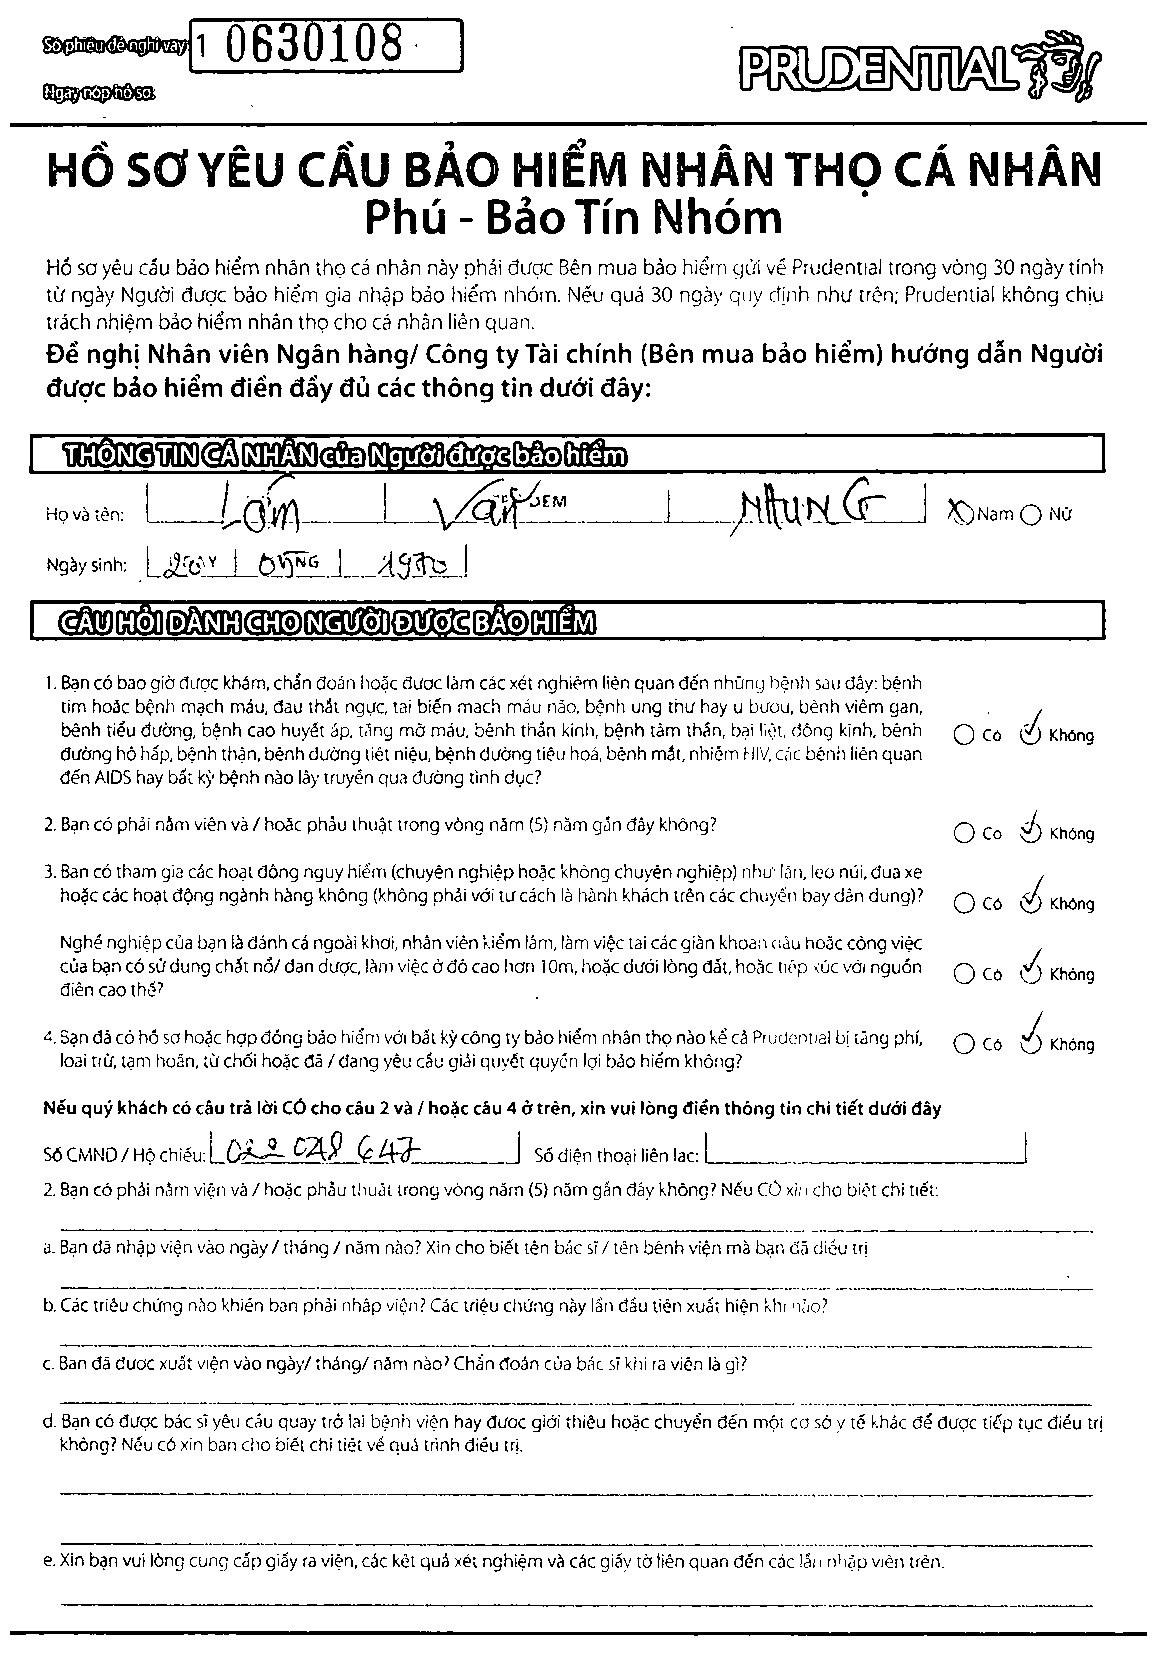 Số phiếu đề nghị vay 1 0630108
PRUDENTIAL
Ngày nộp hồ sơ:
HỒ SƠ YÊU CẦU BẢO HIỂM NHÂN THỌ CÁ NHÂN
Phú - Bảo Tín Nhóm
Hồ sơ yêu cầu bảo hiểm nhân thọ cá nhân này phải được Bên mua bảo hiểm gửi về Prudential trong vòng 30 ngày tính
từ ngày Người được bảo hiểm gia nhập bảo hiểm nhóm. Nếu quá 30 ngày quy định như trên; Prudential không chịu
trách nhiệm bảo hiểm nhân thọ cho cá nhân liên quan.
Đề nghị Nhân viên Ngân hàng/ Công ty Tài chính (Bên mua bảo hiểm) hướng dẫn Người
được bảo hiểm điền đầy đủ các thông tin dưới đây:
THÔNG TIN CÁ NHÂN của Người được bảo hiểm
Họ và tên: Văn NHUNG Nam Nữ
Ngày sinh: 1970
CÂU HỎI DÀNH CHO NGƯỜI ĐƯỢC BẢO HIỂM
1. Bạn có bao giờ được khám, chẩn đoán hoặc được làm các xét nghiệm liên quan đến những bệnh sau đây: bệnh
tim hoặc bệnh mạch máu, đau thắt ngực, tai biến mạch máu não, bệnh ung thư hay u bướu, bệnh viêm gan,
bệnh tiểu đường, bệnh cao huyết áp, tăng mỡ máu, bệnh thần kinh, bệnh tâm thần, bại liệt, động kinh, bệnh
đường hô hấp, bệnh thận, bệnh đường tiết niệu, bệnh đường tiêu hoá, bệnh mắt, nhiễm HIV, các bệnh liên quan
đến AIDS hay bất kỳ bệnh nào lây truyền qua đường tình dục?
Có Không
2. Bạn có phải nằm viện và / hoặc phẫu thuật trong vòng năm (5) năm gần đây không? Có Không
3. Bạn có tham gia các hoạt động nguy hiểm (chuyên nghiệp hoặc không chuyên nghiệp) như lặn, leo núi, đua xe
hoặc các hoạt động ngành hàng không (không phải với tư cách là hành khách trên các chuyến bay dân dụng)? Có Không
Nghề nghiệp của bạn là đánh cá ngoài khơi, nhân viên kiểm lâm, làm việc tại các giàn khoan dầu hoặc công việc
của bạn có sử dụng chất nổ/ đạn dược, làm việc ở độ cao hơn 10m, hoặc dưới lòng đất, hoặc tiếp xúc với nguồn
điện cao thế?
Có Không
4. Bạn đã có hồ sơ hoặc hợp đồng bảo hiểm với bất kỳ công ty bảo hiểm nhân thọ nào kể cả Prudential bị tăng phí,
loại trừ, tạm hoãn, từ chối hoặc đã / đang yêu cầu giải quyết quyền lợi bảo hiểm không?
Có Không
Nếu quý khách có câu trả lời CÓ cho câu 2 và / hoặc câu 4 ở trên, xin vui lòng điền thông tin chi tiết dưới đây
Số CMND / Hộ chiếu: 022 028 647 Số điện thoại liên lạc:
2. Bạn có phải nằm viện và / hoặc phẫu thuật trong vòng năm (5) năm gần đây không? Nếu CÓ xin cho biết chi tiết:
a. Bạn đã nhập viện vào ngày / tháng / năm nào? Xin cho biết tên bác sĩ / tên bệnh viện mà bạn đã điều trị
b. Các triệu chứng nào khiến bạn phải nhập viện? Các triệu chứng này lần đầu tiên xuất hiện khi nào?
c. Bạn đã được xuất viện vào ngày/ tháng/ năm nào? Chẩn đoán của bác sĩ khi ra viện là gì?
d. Bạn có được bác sĩ yêu cầu quay trở lại bệnh viện hay được giới thiệu hoặc chuyển đến một cơ sở y tế khác để được tiếp tục điều trị
không? Nếu có xin bạn cho biết chi tiết về quá trình điều trị.
e. Xin bạn vui lòng cung cấp giấy ra viện, các kết quả xét nghiệm và các giấy tờ liên quan đến các lần nhập viện trên.